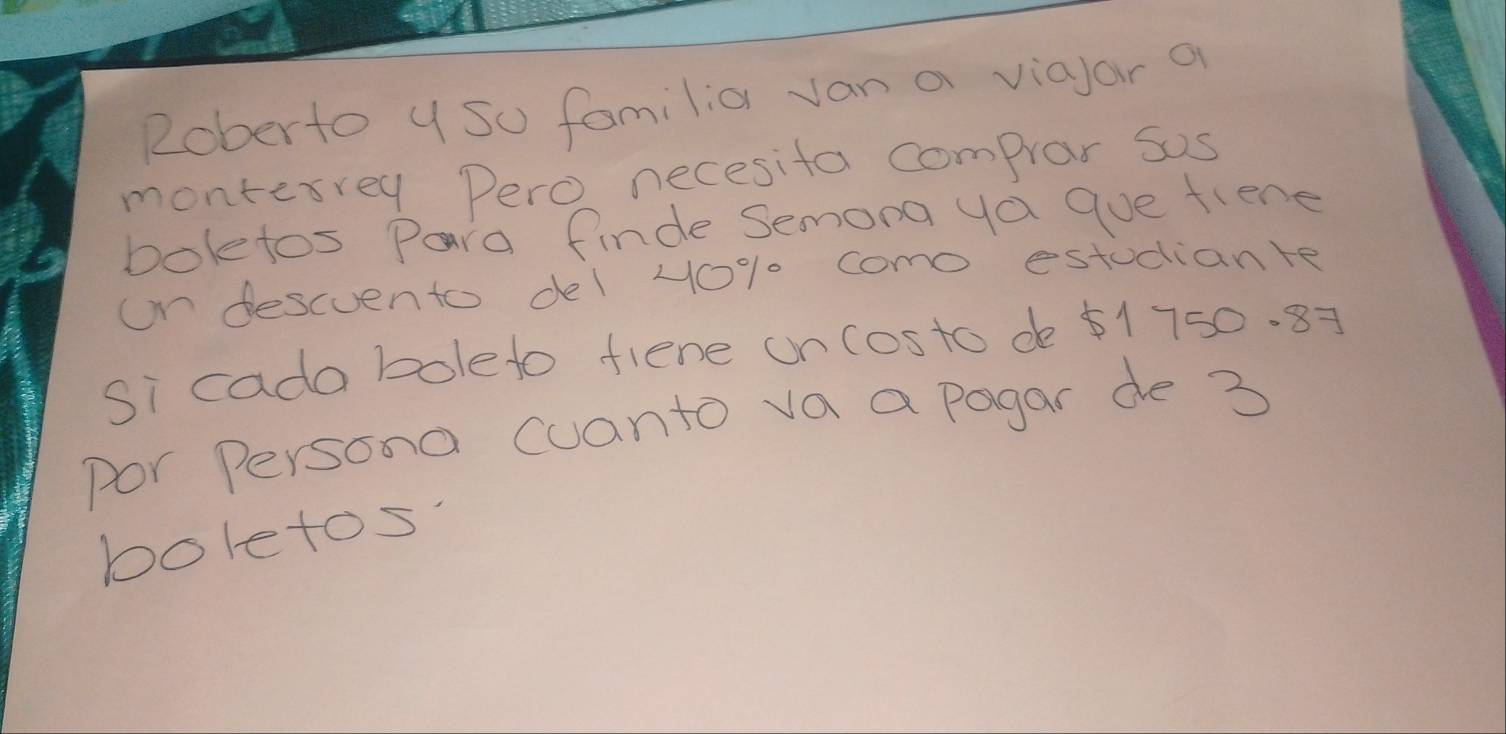 Roberto y su familia van a viajar a
monterrey Pero necesita comprar sus
boletos Para finde semana ya que tiene
un descuento del 40% como estudiante
si cada boleto tiene un costo de $1750.87
por persona cuanto va a pagar de 3
boletos.